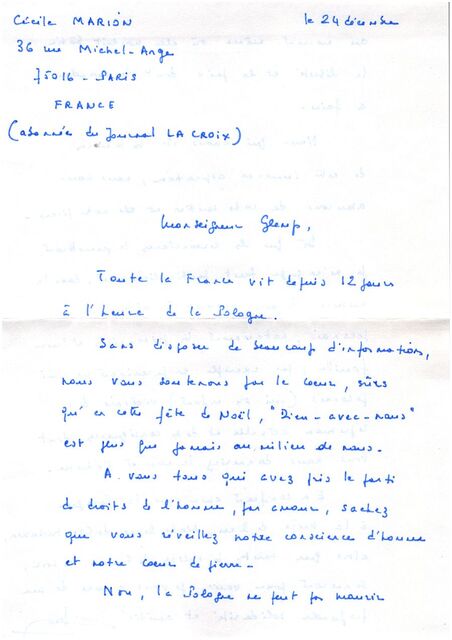 Cécile MARION
le 24 décembre
36 rue Michel-Ange
75016 - PARIS
FRANCE
(abonnée du Journal LA CROIX)
Monseigneur Glemp,
Toute la France vit depuis 12 jours
à l'heure de la Pologne.
Sans disposer de beaucoup d'informations,
nous vous soutenons par le coeur, sûrs
qu'en cette fête de Noël, "Dieu-avec-nous"
est plus que jamais au milieu de nous.
A vous tous qui avez pris le parti
de droits de l'homme, par amour, sachez
que vous réveillez notre conscience d'homme
et notre coeur de pierre -
Non, la Pologne ne peut pas mourir